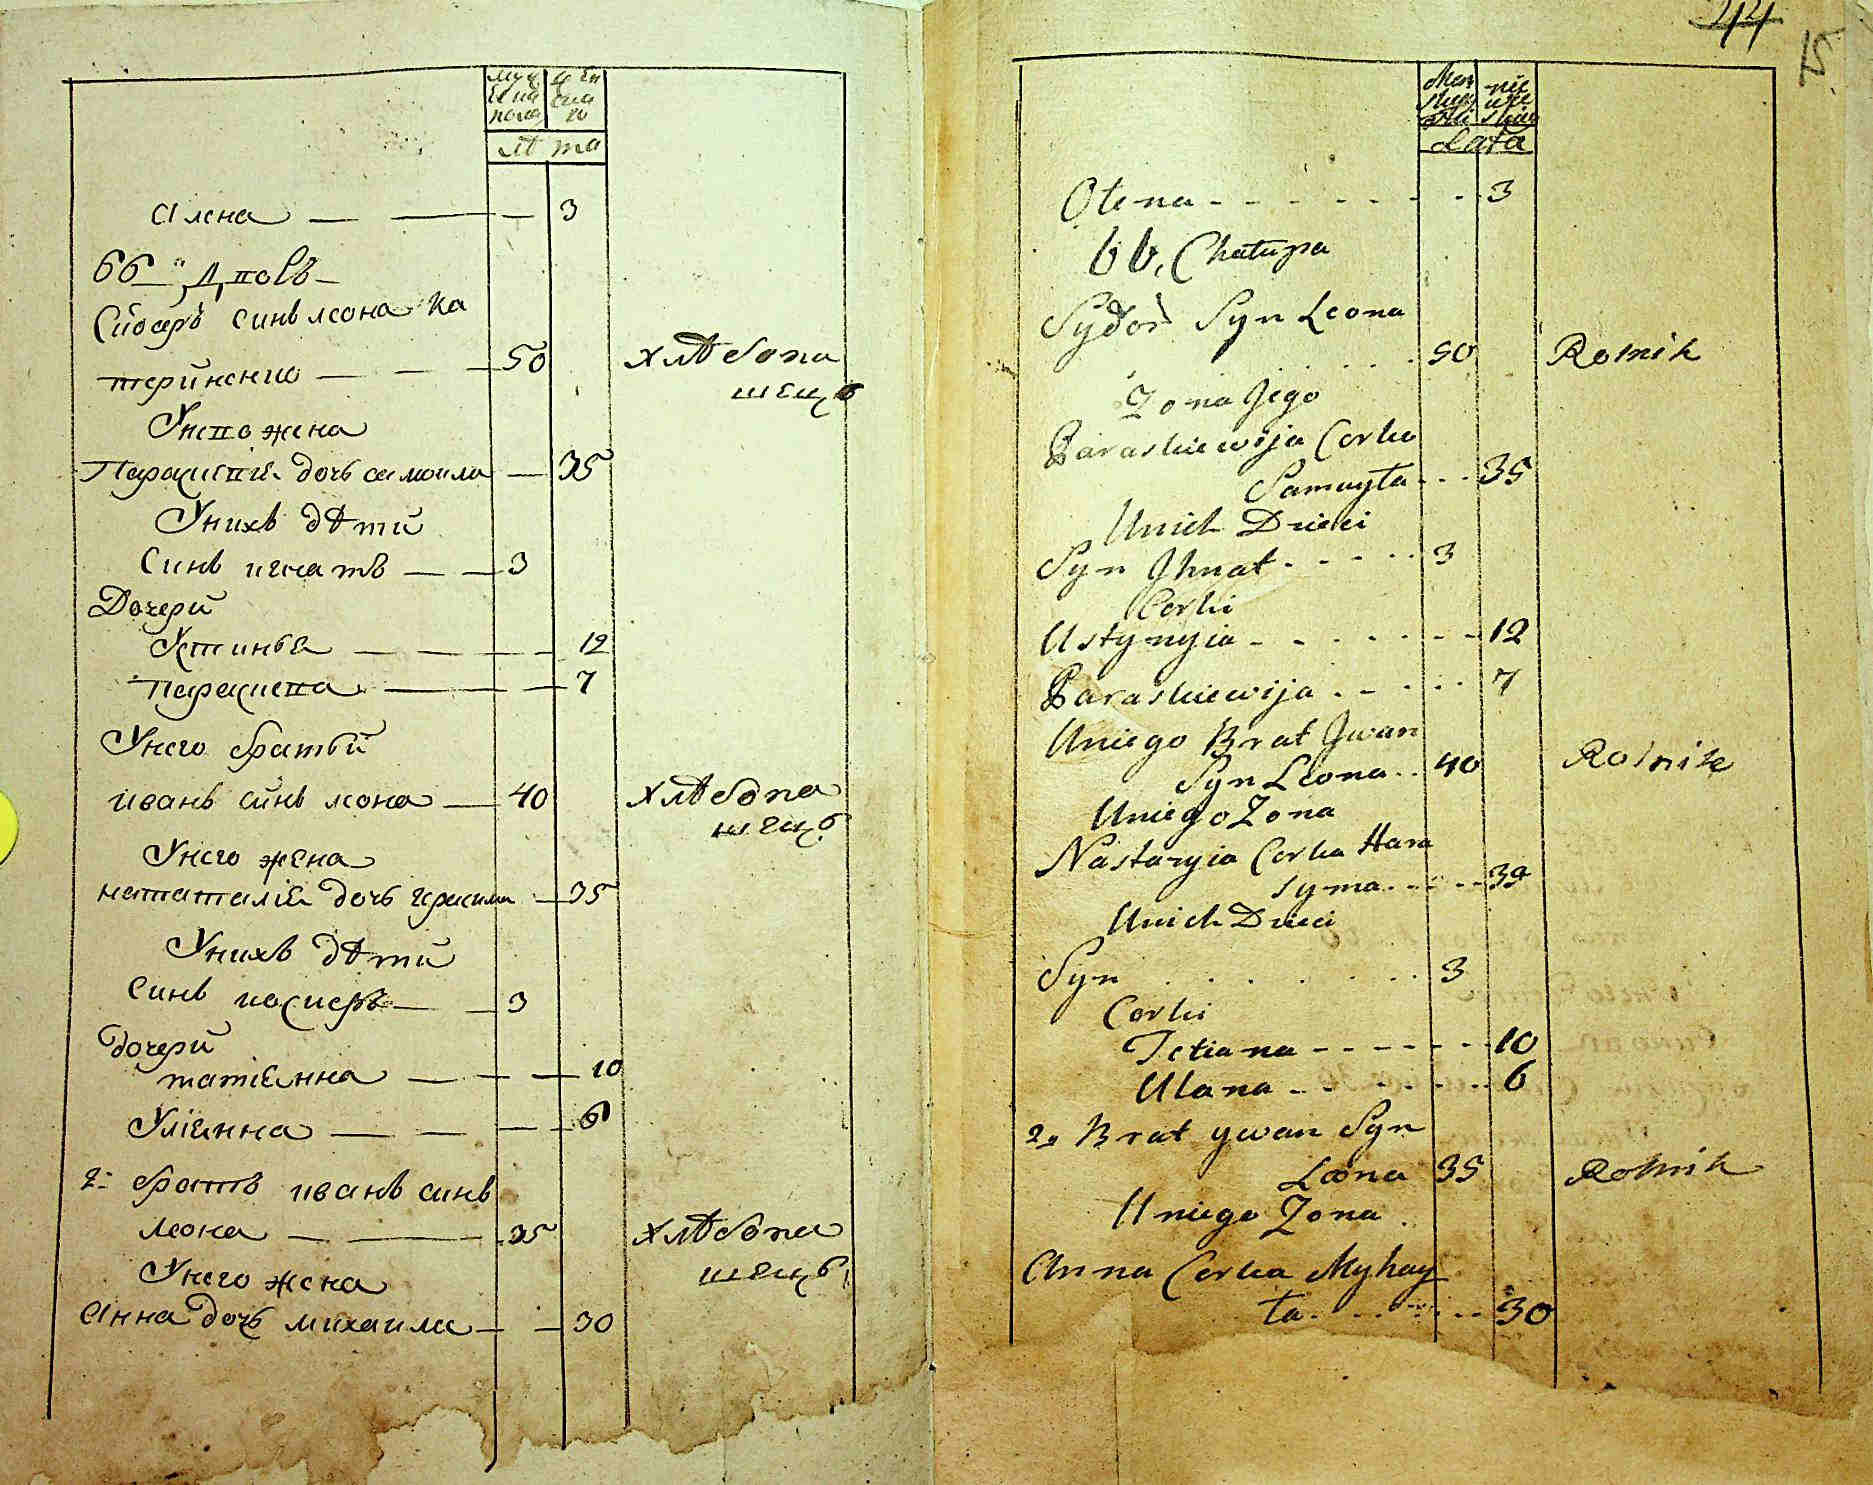 лѣта
Алена — — — 3
66 „ Дповъ —
Сидоръ синъ леона Ка
терински — — — 50 хлѣбопа
шецъ
Унево жена
Параскевіе дочь самоила — 35
Унихъ дѣти
Синъ игнатъ — — 3
Дочери
Устинья — — — — 12
Параскева — — — 7
Унего братьи
иванъ синъ леона — 40 хлѣбопа
шецъ
Унего жена
нататалія дочь герасима — 35
Унихъ дѣти
Синъ — — 3
Дочери
татіянна — — — 10
Уліянна — — — 6
2- братъ иванъ синъ
леона — — 35 хлѣбопа
шецъ
Унего жена
Анна дочь михаила — — 30
44
15
Lata
Olena - - - - - - - 3
66, Chałupa
Sydor Syn Leona
50 Rolnik
Zona Jego
Paraskiewija Corka
Samuyła - - - 35
Unich Dzieci
Syn Jhnat - - - - - 3
Corki
Ustynyia - - - - - - - 12
Paraskiewija - - - - - 7
Uniego Brat Jwan
Syn Leona - - 40 Rolnik
Uniego Zona
Nastazyia Corka Hara
syma - - - - - 35
Unich Dzieci
Syn - - - - - - - 3
Corki
Tetiana - - - - - - - 10
Ulana - - - - - - - 6
2. Brat ywan Syn
Leona 35 Rolnik
Uniego Zona
Anna Corka Myhay
ła - - - - - - - 30